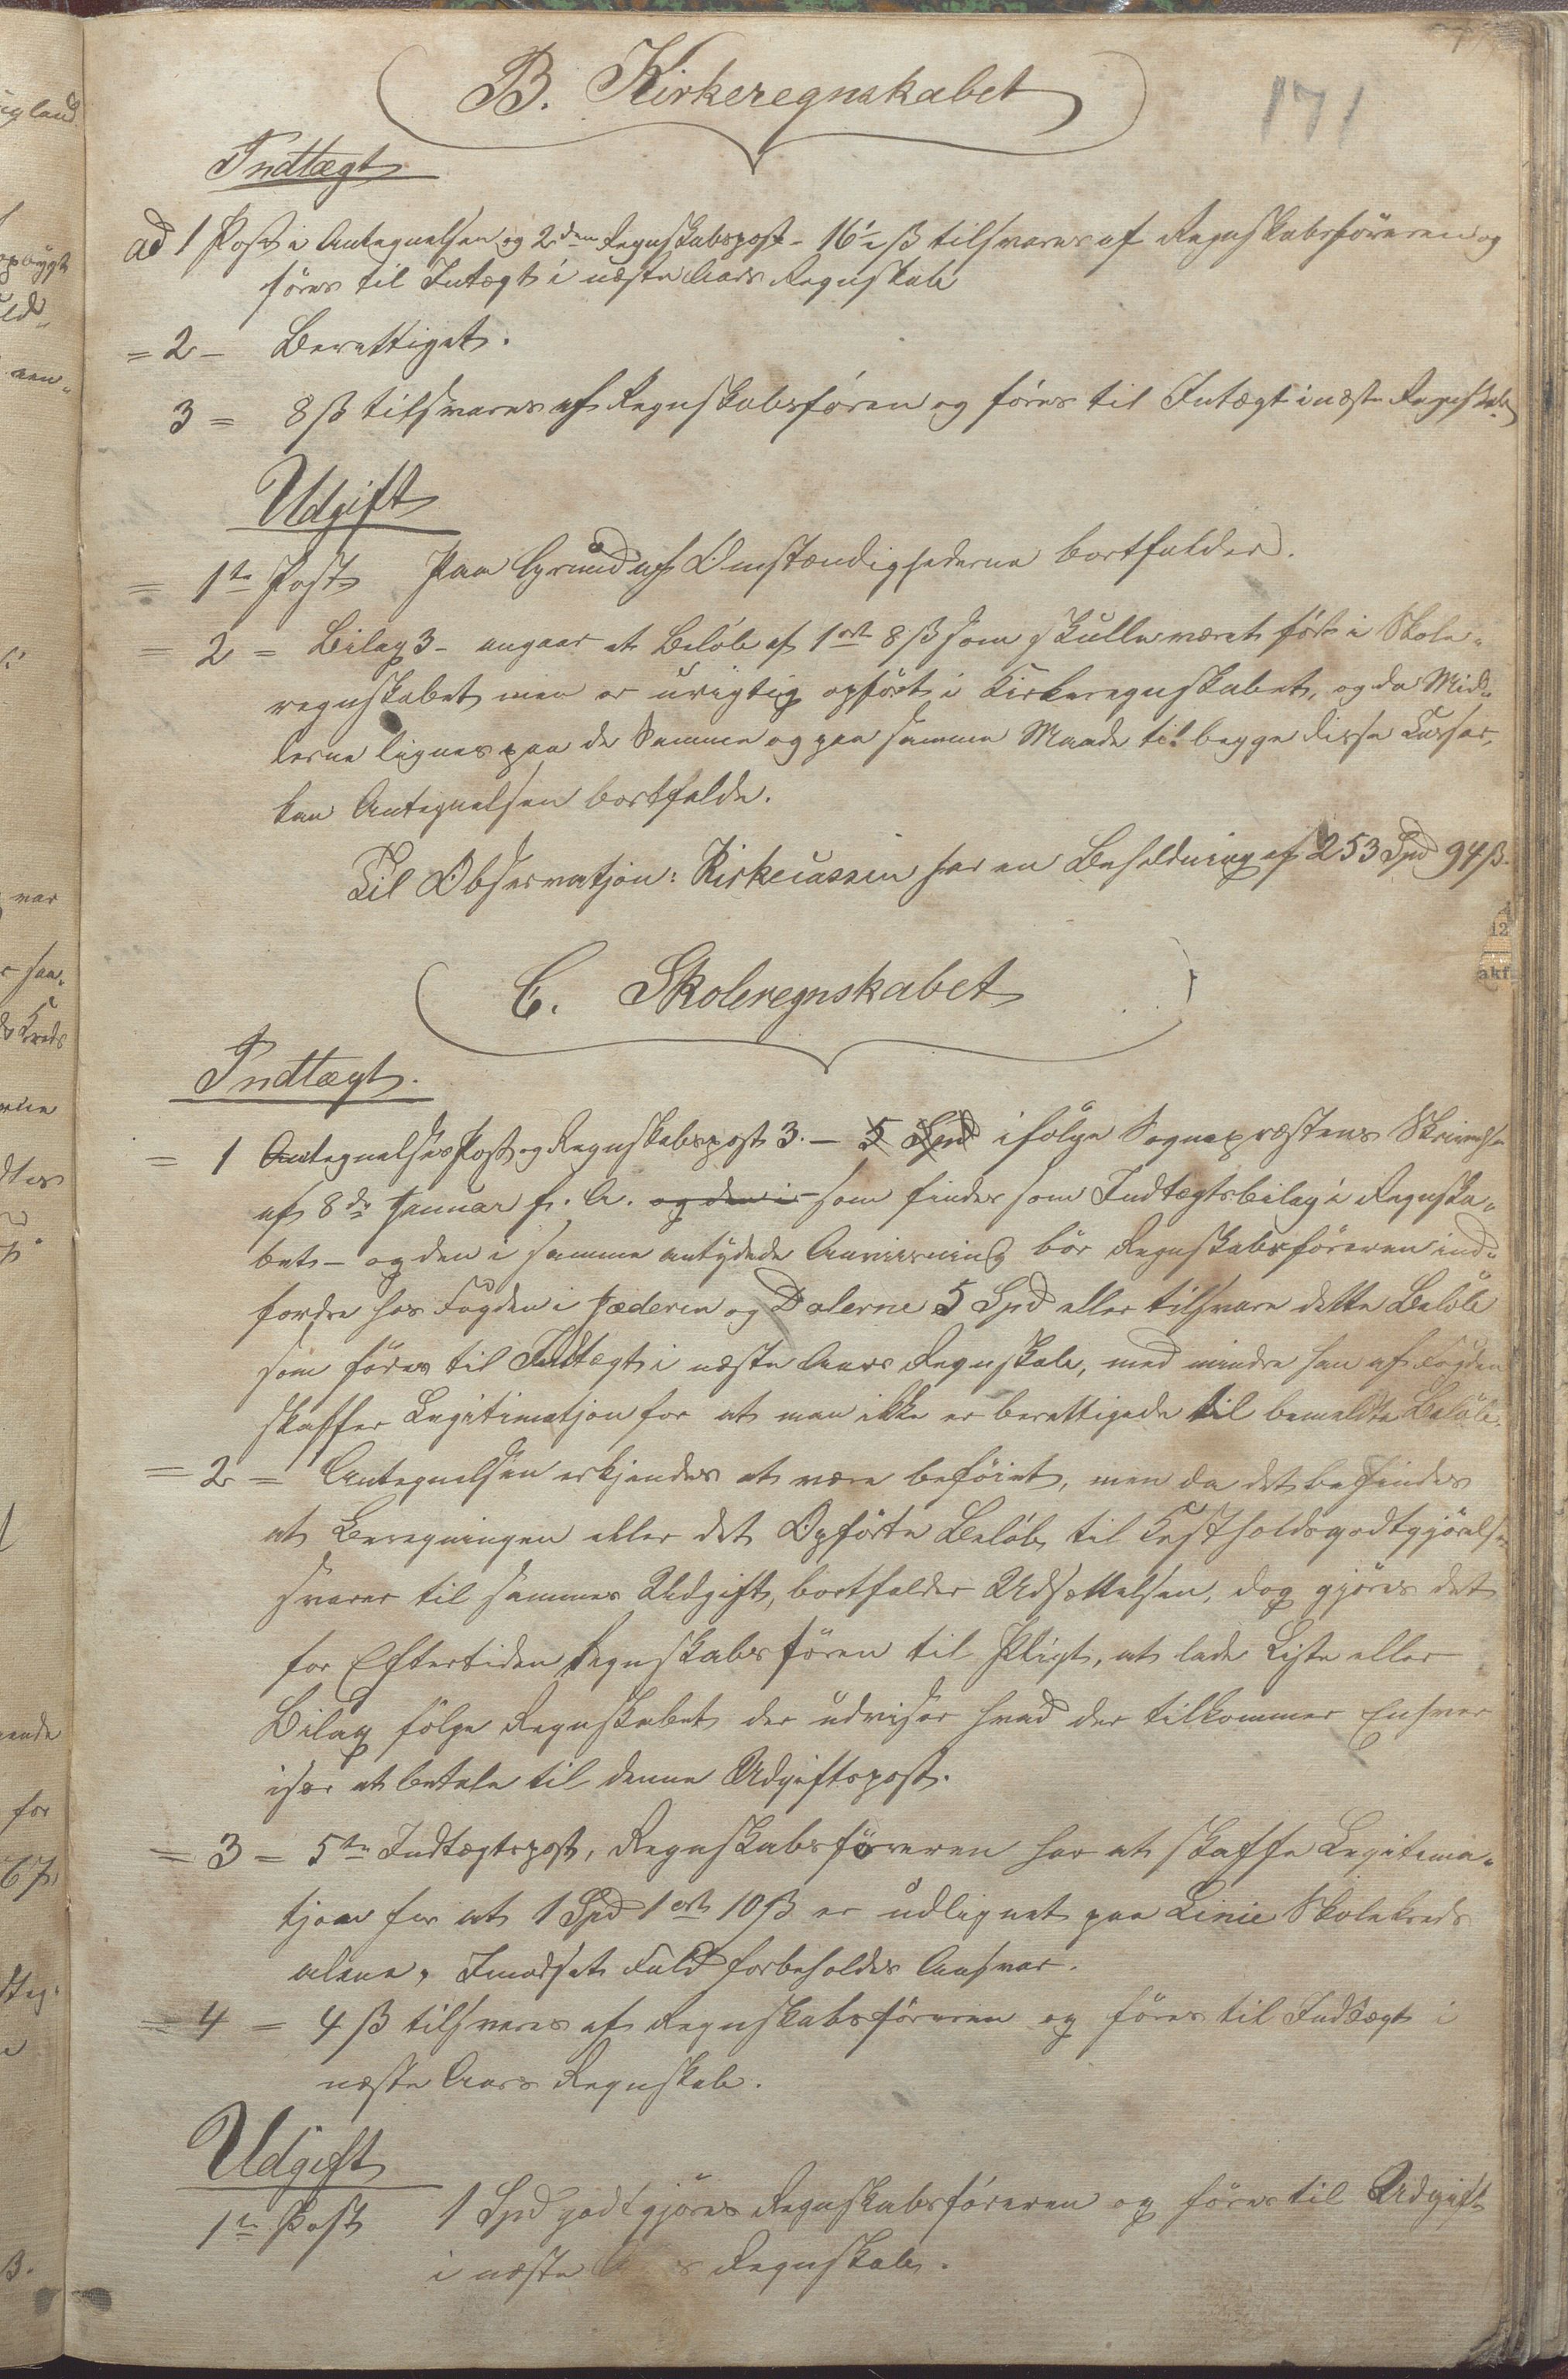 B. Kirkeregnskabet
171
Indtægt
ad 1 Post i Antegnelsen og 2den Regnskabspost - 16½ ß tilsvares af Regnskabsføreren og
føres til Intægt i næste Aars Regnskab
= 2 - Berettiget.
3 = 8 ß tilsvares af Regnskabsføren og føres til Intægt i næste Regnskab
Udgift
= 1te Post Paa Grund af Omstændighederne bortfalder.
= 2 = Bilag 3 - angaar et Beløb af 1 ort 8 ß som skulle været ført i Skole-
regnskabet men er urigtig opført i Kirkeregnskabet, og da Mid-
lerne lignes paa de Samme og paa samme Maade til begge disse Kasser,
kan Antegnelsen bortfalde.
Til Observatjon: Kirkecassen har en Beholdning af 253 Spd 94 ß.
C. Skoleregnskabet
Indtægt.
= 1 Antegnelses Post og Regnskabspost 3. - 5 Spd ifølge Sognepræstens Skrivelse
af 8de Januar f. A. og den i som findes som Indtægtsbilag i Regnska-
bet - og den i samme antydede Anviisning bør Regnskabsføreren ind-
fordre hos Fogden i Jæderen og Dalerne 5 Spd eller tilsvare dette Beløb
som føres til Indtægt i næste Aars Regnskab, med mindre han af Fogden
skaffer Legitimatjon for at man ikke er berettigede til bemeldte Beløb.
= 2 = Antegnelsen erkjendes at være beføiet, men da det befindes
at Beregningen eller det Opførte Beløb til Kostholdsgodtgjørelse
svarer til sammes Udgift, bortfalder Udsættelsen, dog gjøres det
for Eftertiden Regnskabsføren til Pligt, at lade Liste eller
Bilag følge Regnskabet der udviser hvad der tilkommer Enhver
især at betale til denne Udgiftspost.
= 3 = 5te Indtægtspost, Regnskabsføreren har at skaffe Legitima-
tjon for at 1 Spd 1 ort 10 ß er udlignet paa Linie Skolekreds
alene, Imodsat Fald forbeholdes Ansvar.
= 4 = 4 ß tilsvares af Regnskabsføreren og føres til Indtægt i
næste Aars Regnskab.
Udgift
1te Post 1 Spd godtgjøres Regnskabsføreren og føres til Udgift
i næste Regnskab.